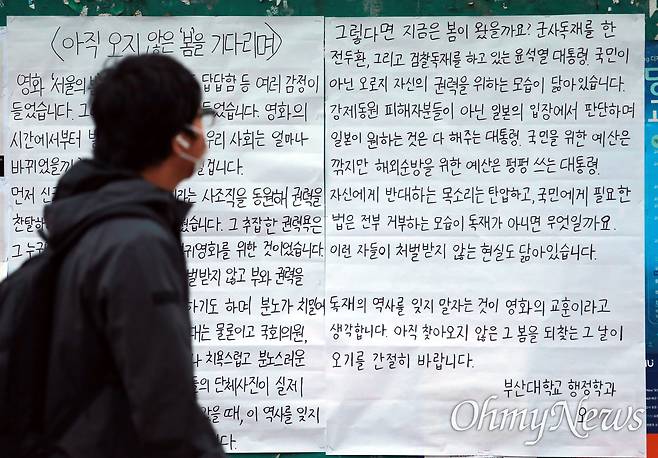 〈아직 오지 않은 '봄'을 기다리며〉
영화 '서울의 답답함 등 여러 감정이
들었습니다. 들었습니다. 영화의
시간에서부터 우리 사회는 얼마나
바뀌었을까
먼저 신 라는 사조직을 동원해 권력을
찬탈하 었습니다. 그 추잡한 권력욕은
그 누구 귀영화를 위한 것이었습니다.
벌받지 않고 부와 권력을
하기도 하며 분노가 치밀어
대는 물론이고 국회의원,
나 치욕스럽고 분노스러운
들의 단체사진이 실제
때, 이 역사를 잊지
다.
그렇다면 지금은 봄이 왔을까요? 군사독재를 한
전두환, 그리고 검찰독재를 하고 있는 윤석열 대통령. 국민이
아닌 오로지 자신의 권력을 위하는 모습이 닮아있습니다.
강제동원 피해자분들이 아닌 일본의 입장에서 판단하며
일본이 원하는 것은 다 해주는 대통령. 국민을 위한 예산은
깎지만 해외순방을 위한 예산은 펑펑 쓰는 대통령.
자신에게 반대하는 목소리는 탄압하고, 국민에게 필요한
법은 전부 거부하는 모습이 독재가 아니면 무엇일까요.
이런 자들이 처벌받지 않는 현실도 닮아있습니다.
독재의 역사를 잊지 말자는 것이 영화의 교훈이라고
생각합니다. 아직 찾아오지 않은 그 봄을 되찾는 그 날이
오기를 간절히 바랍니다.
부산대학교 행정학과
오
OhmyNews